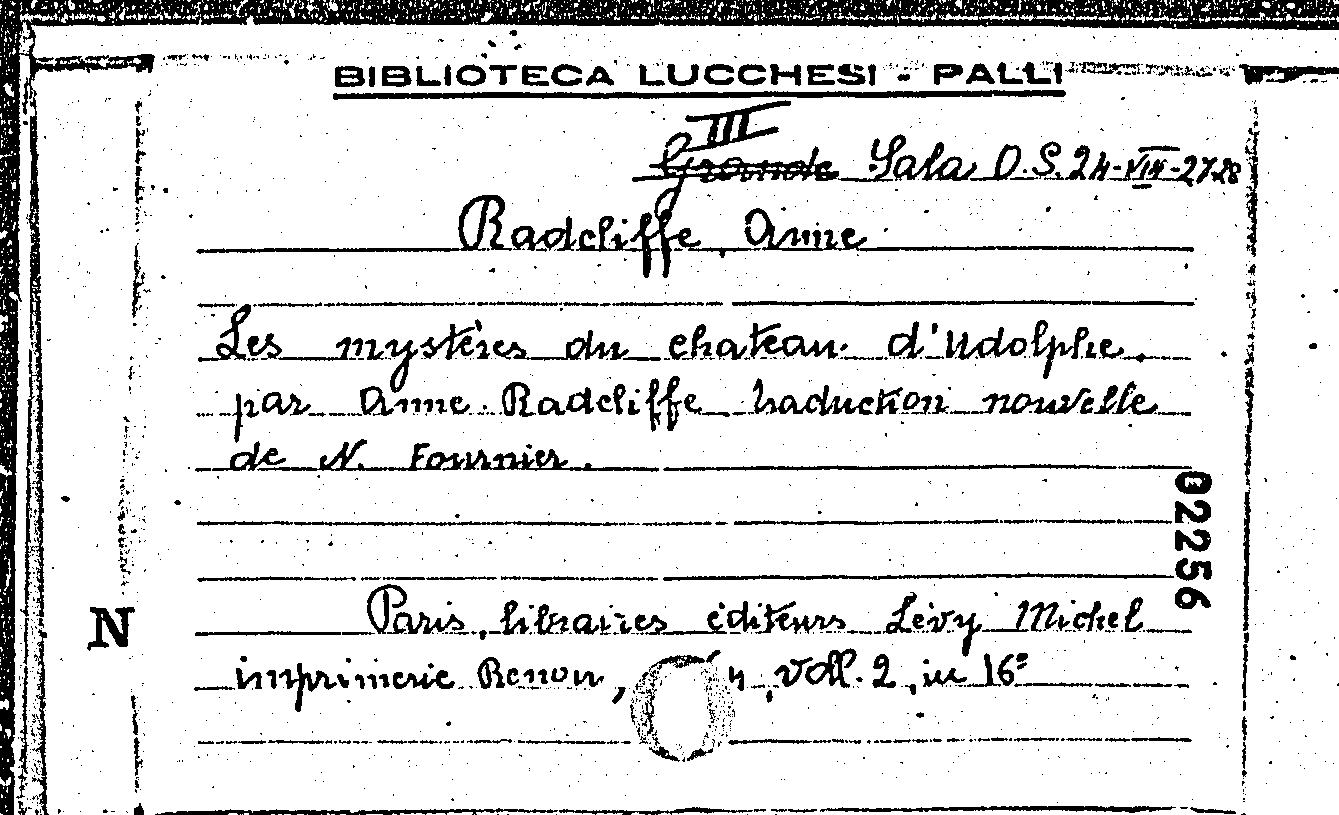 BIBLIOTECA LUCCHESI - PALLI
III
Grande Sala D.S. 24-VIII-27-28
Radcliffe, Anne
Les mystères du chateau d'Udolphe.
par Anne Radcliffe traduction nouvelle
de N. Fournier.
02256
Paris, libraires éditeurs Lévy Michel
N
imprimerie Renou, voll. 2, in 16º